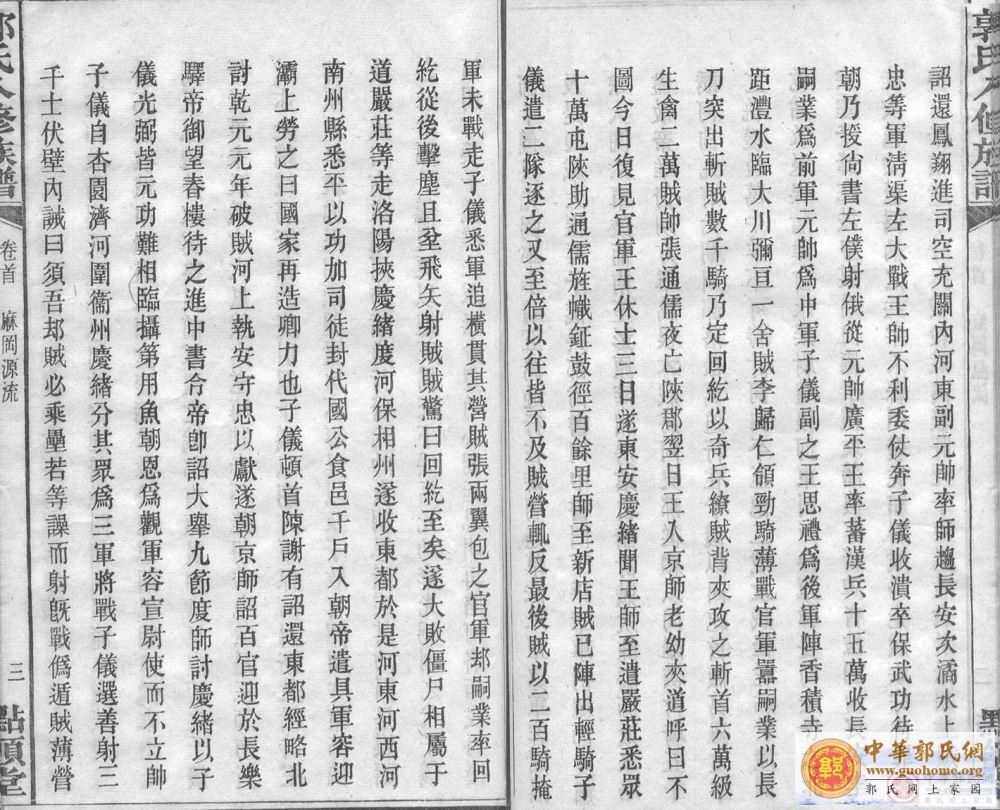 郭氏八修族譜
詔還鳳翔進司空充關內河東副元帥率師趨長安次潏水上
忠等軍淸渠左大戰王師不利委仗奔子儀收潰卒保武功待
朝乃授尙書左僕射俄從元帥廣平王率蕃漢兵十五萬收長
嗣業爲前軍元帥爲中軍子儀副之王思禮爲後軍陣香積寺
距灃水臨大川彌亘一舍賊李歸仁領勁騎薄戰官軍囂嗣業以長
刀突出斬賊數千騎乃定回紇以奇兵繚賊背夾攻之斬首六萬級
生禽二萬賊帥張通儒夜亡陝郡翌日王入京師老幼夾道呼曰不
圖今日復見官軍王休士三日遂東安慶緖聞王師至遣嚴莊悉眾
十萬屯陝助通儒旌幟鉦鼓徑百餘里師至新店賊已陣出輕騎子
儀遣二隊逐之又至倍以往皆不及賊營輒反最後賊以二百騎掩
軍未戰走子儀悉軍追橫貫其營賊張兩翼包之官軍却嗣業率回
紇從後擊塵且坌飛矢射賊賊驚曰回紇至矣遂大敗僵尸相屬于
道嚴莊等走洛陽挾慶緖度河保相州遂收東都於是河東河西河
南州縣悉平以功加司徒封代國公食邑千戶入朝帝遣具軍容迎
灞上勞之曰國家再造卿力也子儀頓首陳謝有詔還東都經略北
討乾元元年破賊河上執安守忠以獻遂朝京師詔百官迎於長樂
驛帝御望春樓待之進中書令帝卽詔大舉九節度師討慶緖以子
儀光弼皆元功難相臨攝第用魚朝恩爲觀軍容宣尉使而不立帥
子儀自杏園濟河圍衞州慶緖分其眾爲三軍將戰子儀選善射三
千士伏壁內誡曰須吾却賊必乘壘若等譟而射旣戰僞遁賊薄營
郭氏八修族譜
卷首 麻岡源流
三
點頭堂
中華郭氏網
www.guohome.org
郭氏网上家园